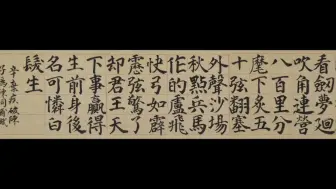 看劍夢迴
吹角連營
八百里分
麾下炙五
十弦翻塞
外聲沙場
秋點兵馬
作的盧飛
快弓如霹
靂弦驚了
却君王天
下事贏得
生前身後
名可憐白
髮生
辛棄疾破陣